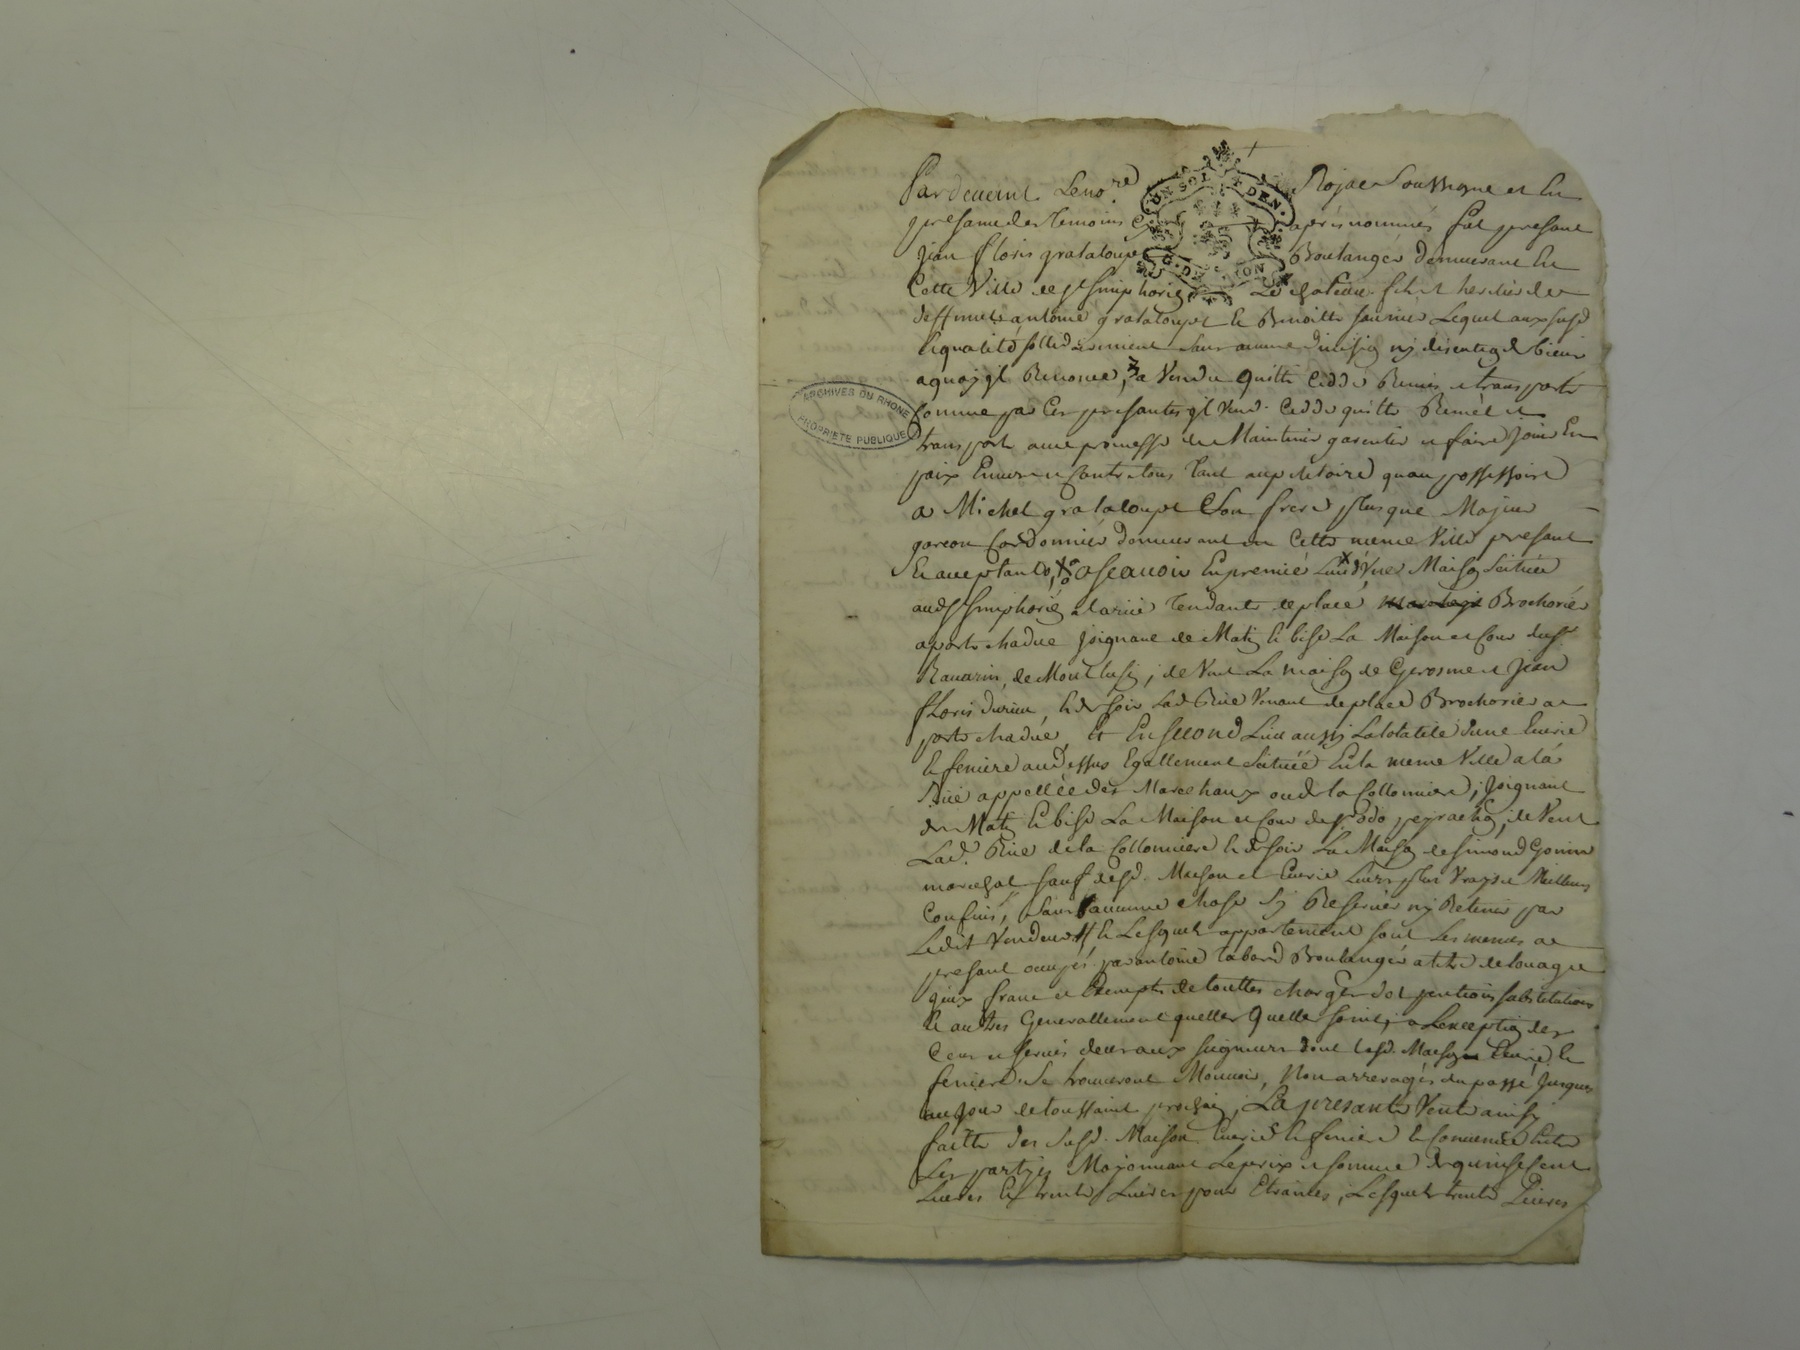 Pardevant Leno.re Royal Soussigné et En
presance des temoins cy apres nommés fut presant
Jean floris grataloupt Boulanger demeurant En
Cette Ville de St Simphorien Le chateau fils et heritier de
deffunts antoine grataloupt et Benoitte Lequel aux susd
a quoy jl Renonce, a Vendu quitté Ceddé Remis et transporté
Comme par Ces presantes jl Vend Cedde quitte Remèt et
transporte avec promesse de Maintenir garentir et faire Jouir En
paix Envers et Contre tous tant au petitoire quau possessoire
a Michel grataloupt Son frere plusque Majeur
garcon Cordonnier demeurant en Cette meme Ville presant
Et acceptant, ascavoir En premié Lieu d'Une Maison Scituée
aud St Simphorien a la rue tendante de place Brochorier
a porte chadue joignant de Matin et bise La Maison et Cour du Sr
de Montlusin, de Vent La maison de Gerosme et Jean
floris durieu, et de soir Lad Rue Venant de place Brochorier a
porte chadue, Et En second Lieu aussy La totalité d'une Ecurie
Et feniere au dessus Egallement Scituée En la meme Ville a la
Rue appellée des Marechaux ou de la Collonniere, joignant
de Matin Et bise La Maison et Cour de de Vent
Lad. Rue de la Collonniere Et de soir La Maison de Simond Gonin
marechal sauf desd. Maison et Ecurie Leurs plus Vrays et Meilleurs
Confins, Sans aucune chose Sy Reserver ny Retenir par
Ledit Vendeur Et Lesquels appartement sont Les memes a
presant occupés par antoine tabard Boulanger a titre de louage
jceux franc et Exempts de touttes charges det pentions substitutions
Et autres Generallement quelles Quelles soint, a Lexception des
Cens et servis deus aux seigneurs dont lesd. Maison Ecurie Et
feniere Se trouveront Mouvoir, Non arreragés du passé Jusques
au Jour de toussaint prochain, La presante Vente ainsy
faitte des Susd. Maison Ecurie Et feniere Et Convenue Entre
Les partyes Moyonnant Le prix et somme de quinse Cent
Livres Et trente Livres pour Etraines, Lesquels trente Livres
UN SOL
DEN.
G. DE LYON
ARCHIVES DU RHONE
PROPRIETE PUBLIQUE